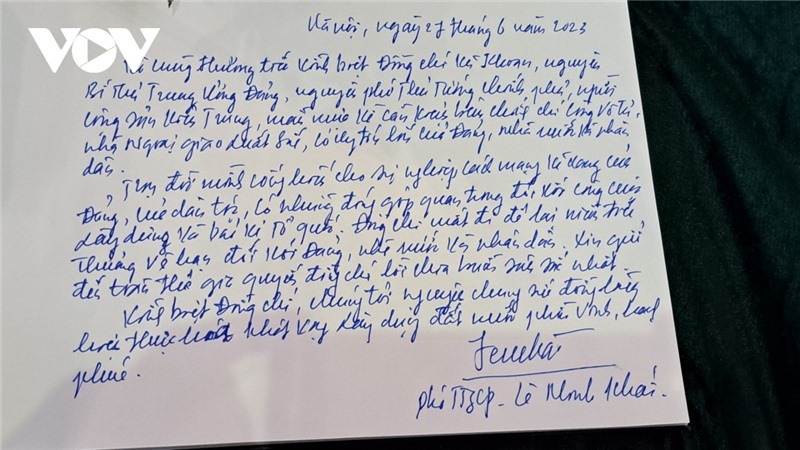 VOV
Hà Nội, ngày 27 tháng 6 năm 2023
Vô cùng thương tiếc kính biệt Đồng chí Vũ Khoan, nguyên
Bí thư Trung ương Đảng, nguyên phó Thủ tướng chính phủ, người
cộng sản kiên trung, mẫu mực, cần kiệm liêm chính chí công vô tư,
nhà ngoại giao xuất sắc, có uy tín lớn của Đảng, nhà nước và nhân
dân.
Trọn đời mình cống hiến cho sự nghiệp cách mạng vẻ vang của
Đảng, của dân tộc, có những đóng góp quan trọng đối với công cuộc
xây dựng và bảo vệ Tổ quốc. Đồng chí mất đi để lại niềm tiếc
thương vô hạn đối với Đảng, nhà nước và nhân dân. Xin gửi
đến toàn thể gia quyến đồng chí lời chia buồn sâu sắc nhất.
Kính biệt Đồng chí, chúng tôi nguyện chung sức đồng lòng
thực hiện khát vọng xây dựng đất nước phồn vinh, hạnh
phúc.
phó TTgCP - Lê Minh Khái.